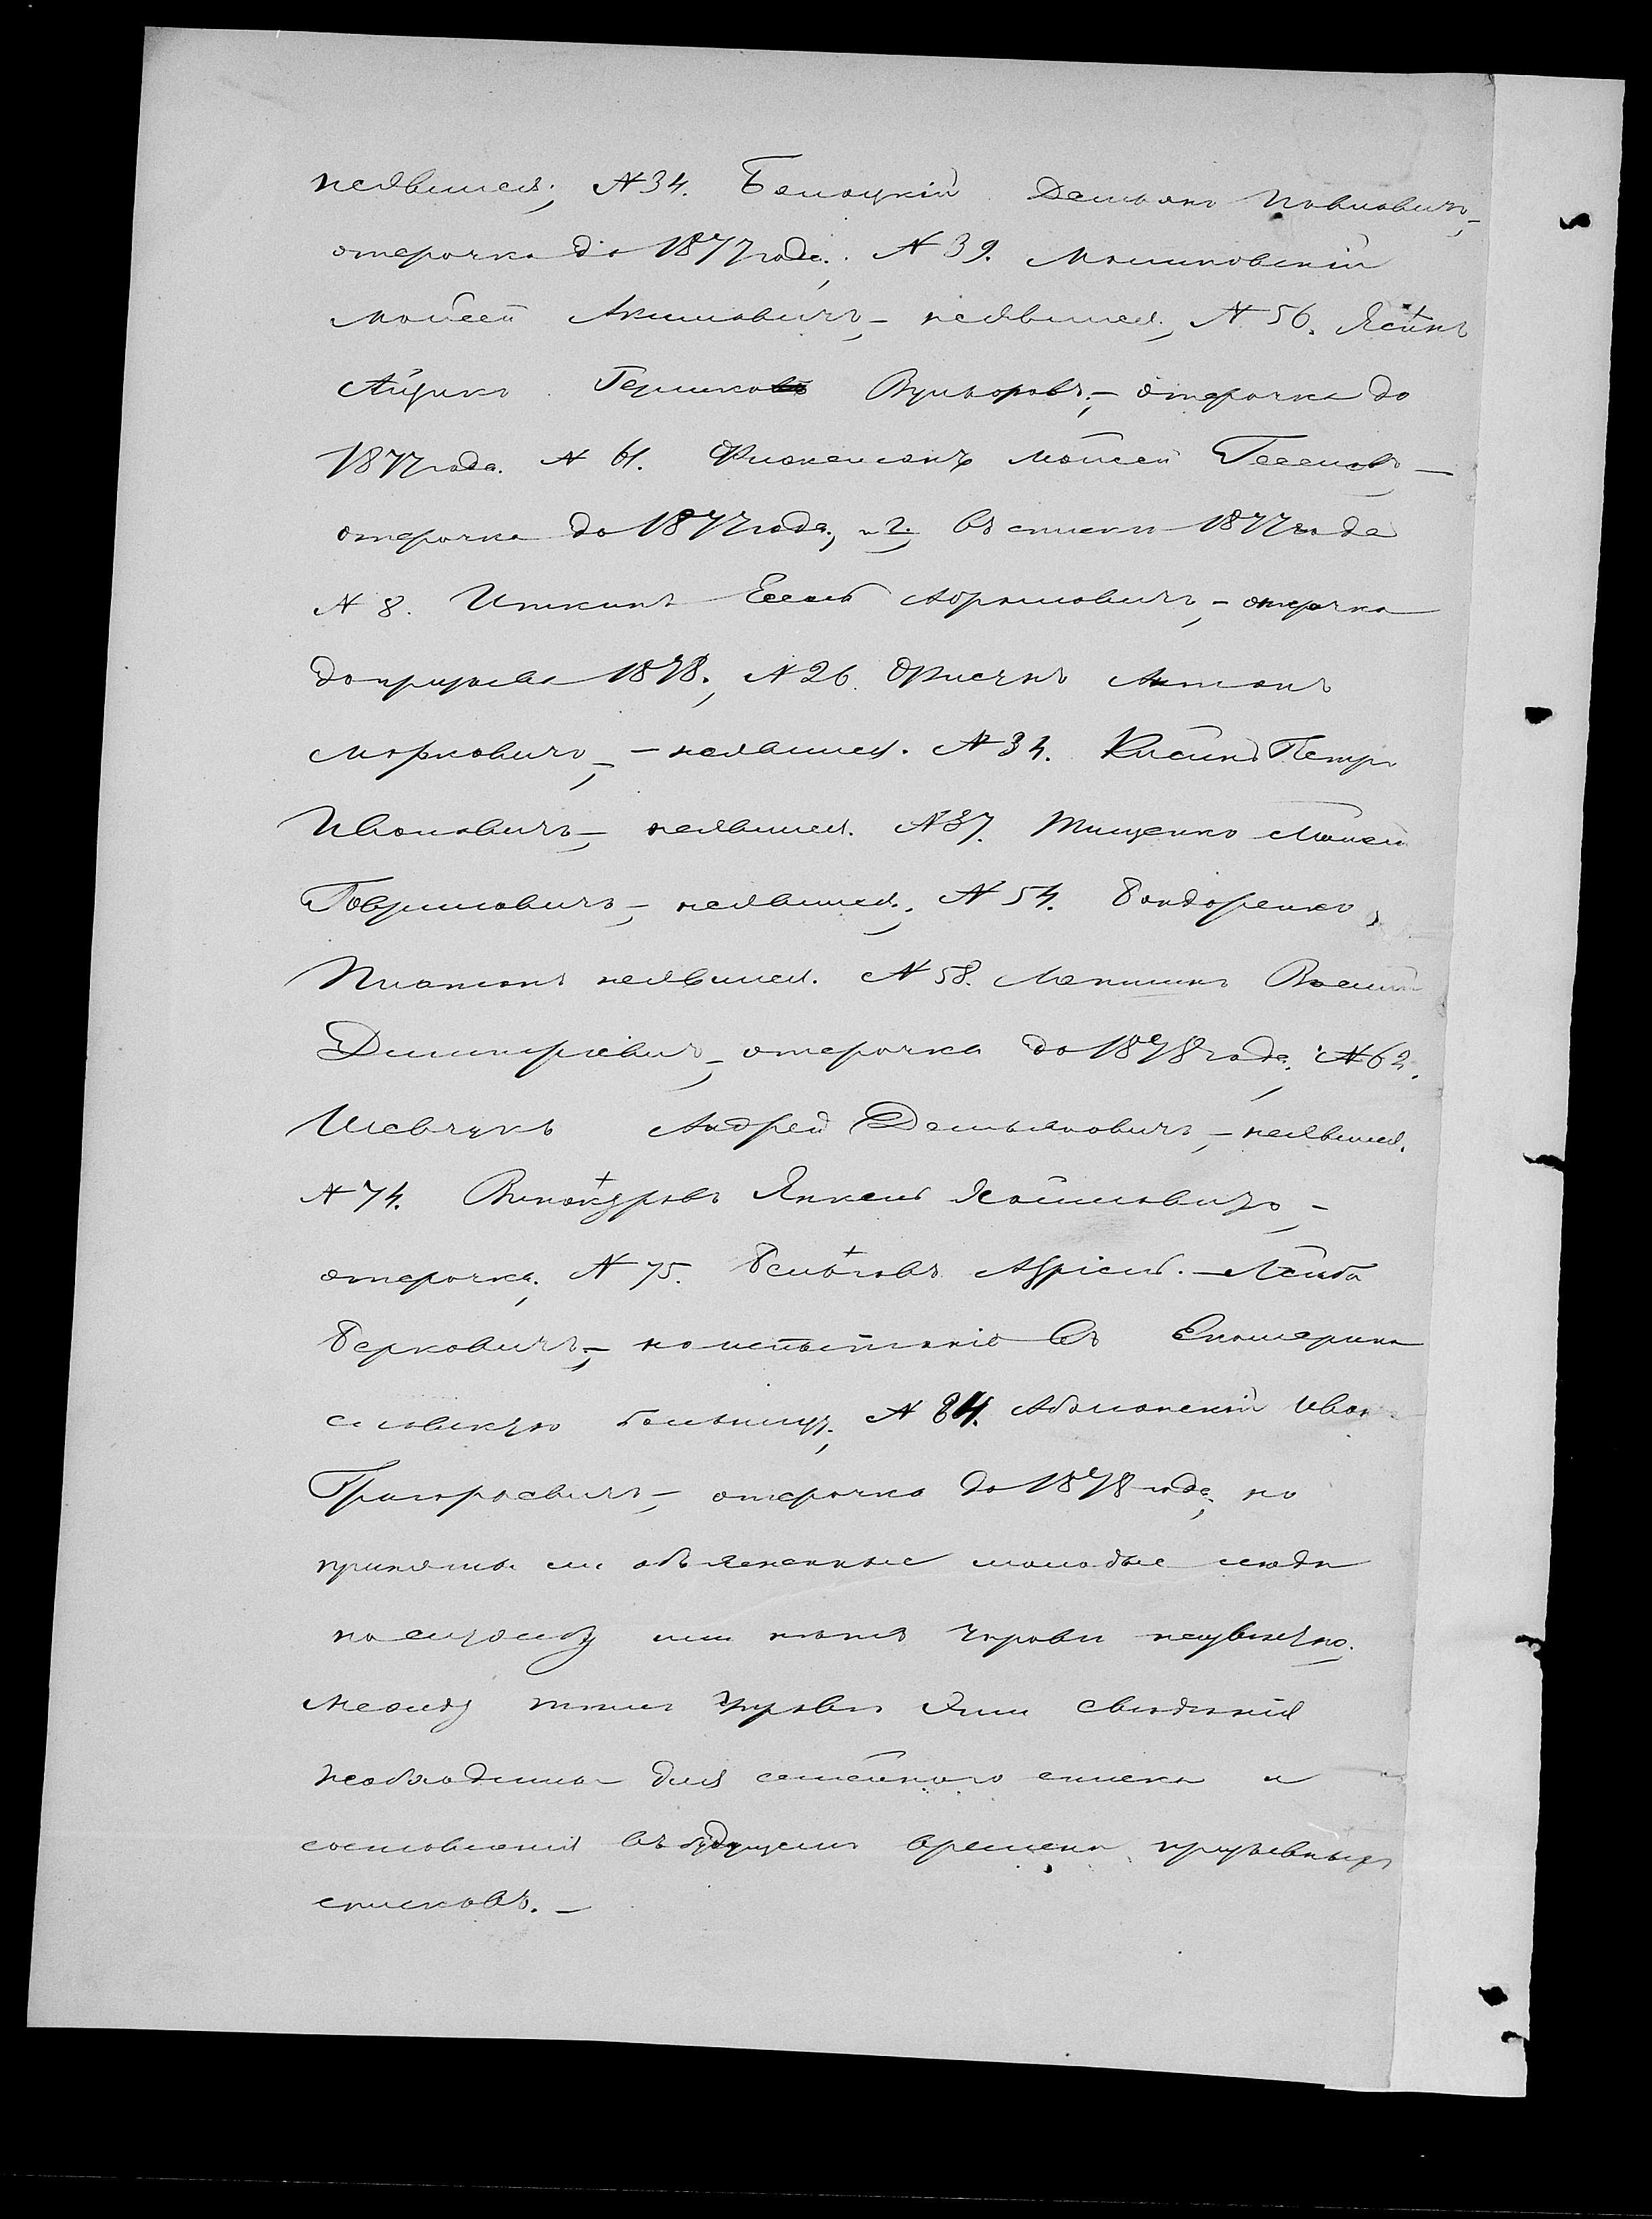 неявился; №34. Белоцкій Демьянъ Павловичъ, –
отсрочка до 1877 года; №39. Малиновскій
Мойсей Акимовичъ, – неявился; №56. Ясинъ
Айзикъ Гершковъ Вульфовъ, – отсрочка до
1877 года. №61. Фиокельонъ Мойсей Гесселевъ, –
отсрочка до 1877 года, и 2, въ списки 1877 года
№8. Иткинъ Ессель Абрамовичъ, – отсрочка
до призыва 1878; №26. Антонъ
Марковичъ, – неявился. №34. Петръ
Ивановичъ, – неявился. №37. Тищенко Мойсей
Гавриловичъ, – неявился; №54. Бондаренко,
Платонъ неявился. №58. Лапшинъ Васи
Дмитріевичъ, – отсрочка до 1878 года; №62.
Шевчукъ Андрей Демьяновичъ, – неявился.
№74. Винокуровъ Янкель Хаимовичъ, –
отсрочка; №75. Азріель – Лейба
Берковичъ, – на испытаніе въ Екатерино
славскую больницу; №84. Абламскій Иван
Григорьевичъ, – отсрочка до 1878 года; но
приняты ли объясненные молодые люди
на службу или нѣтъ Управѣ неизвѣстно.
Между тѣмъ Управѣ эти свѣдѣнія
необходимы для семейнаго списка и
составленія въ будущемъ времени призывныхъ
списковъ. –